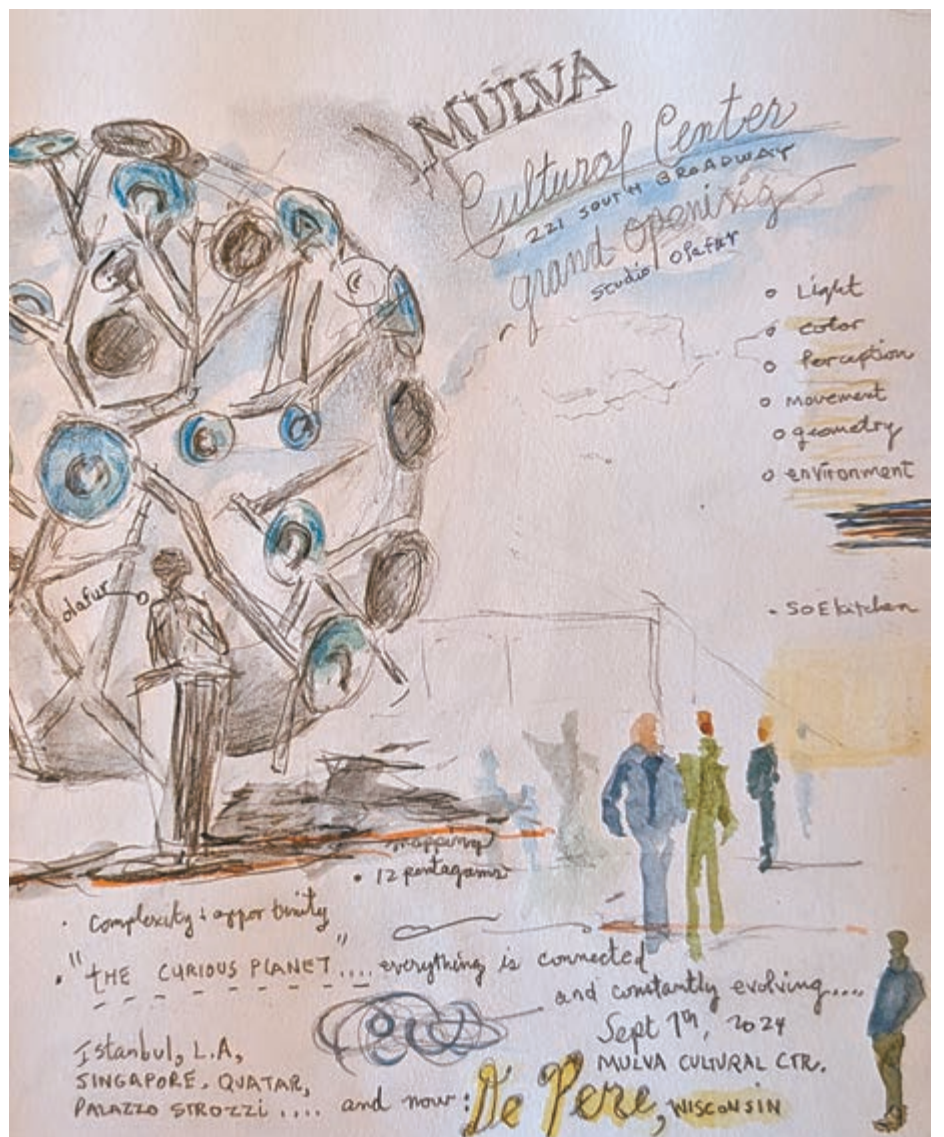 MULVA
Cultural Center
221 SOUTH BROADWAY
grand opening
studio olafur
Light
color
Perception
movement
geometry
environment
olafur
• SOE kitchen
mapping
• 12 pentagams
• complexity & opportunity
• "tHE CURIOUS PLANET".... everything is connected
and constantly evolving....
Sept 7th, 2024
MULVA CULTURAL CTR.
Istanbul, L.A,
SINGAPORE, QUATAR,
PALAZZO STROZZI .... and now: De Pere, WISCONSIN